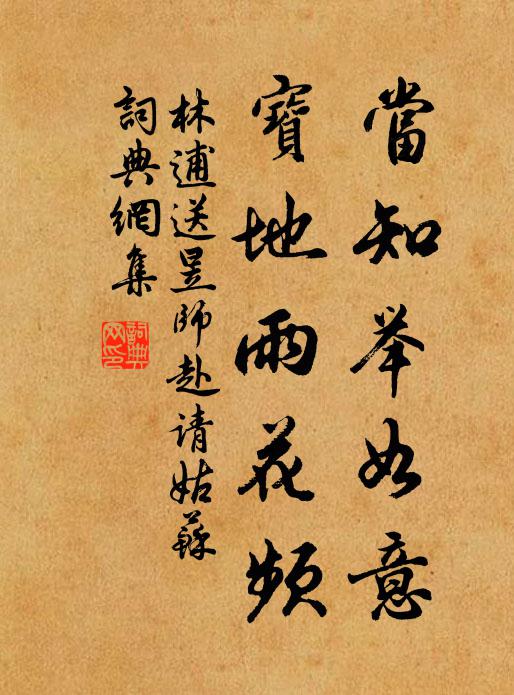 當知举如意
寶地雨花頻
林逋送昱師赴请姑蘇
詞典網集
詞典
网印